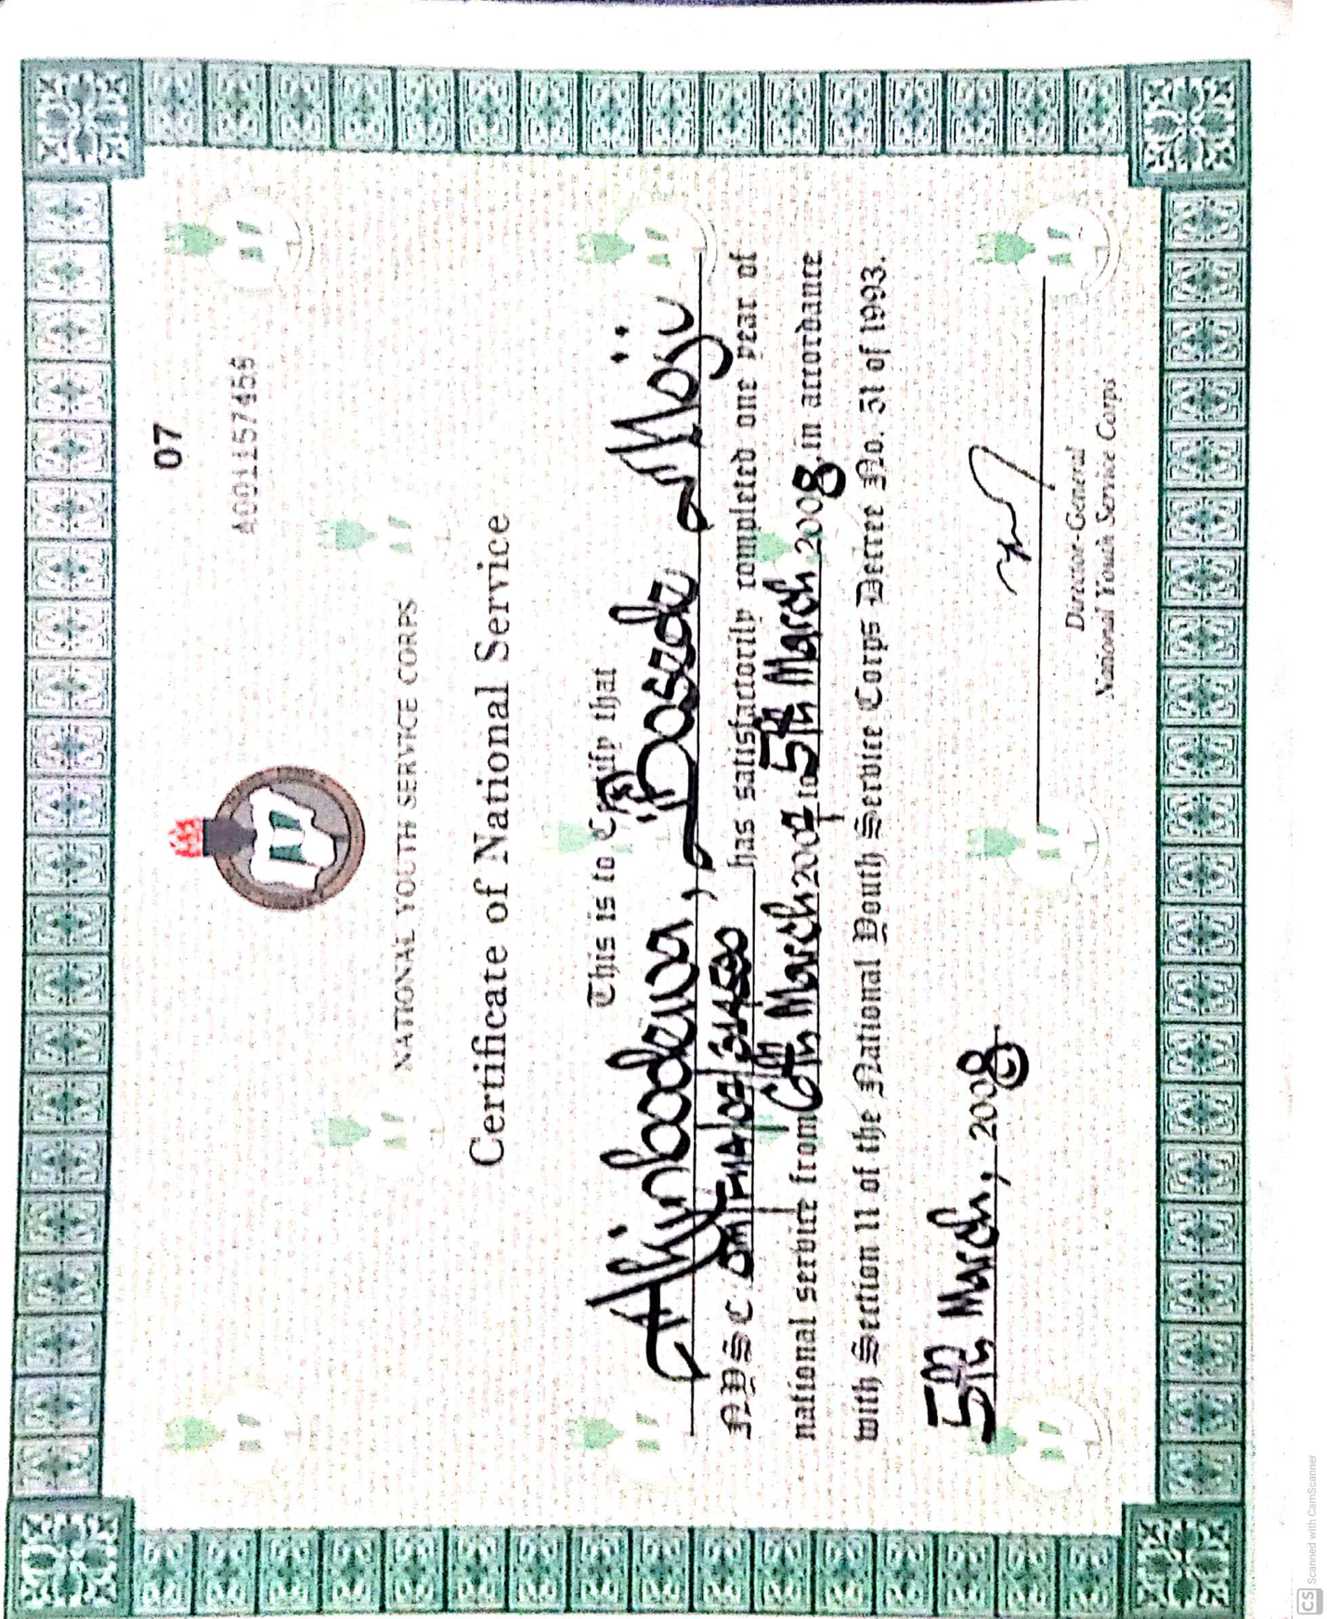 07
A001157455
NATIONAL YOUTH SERVICE CORPS
Certificate of National Service
This is to Certify that
Akinbodewa, Bosede Moji
NYSC has satisfactorily completed one year of
national service from 6th March 2007 to 5th March 2008 in accordance
with Section 11 of the National Youth Service Corps Decree No. 51 of 1993.
5th March, 2008
Director-General
National Youth Service Corps
CS Scanned with CamScanner